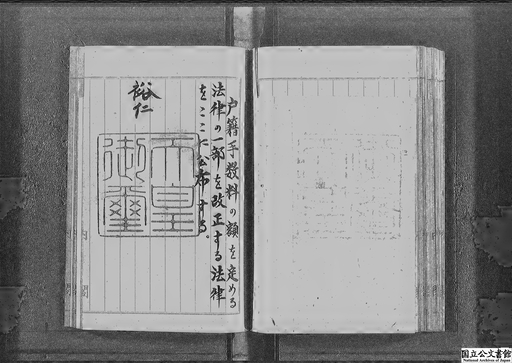 戸籍手数料の額を定める
法律の一部を改正する法律
をここに公布する。
裕仁
天皇
御璽
内
閣
国立公文書館
National Archives of Japan